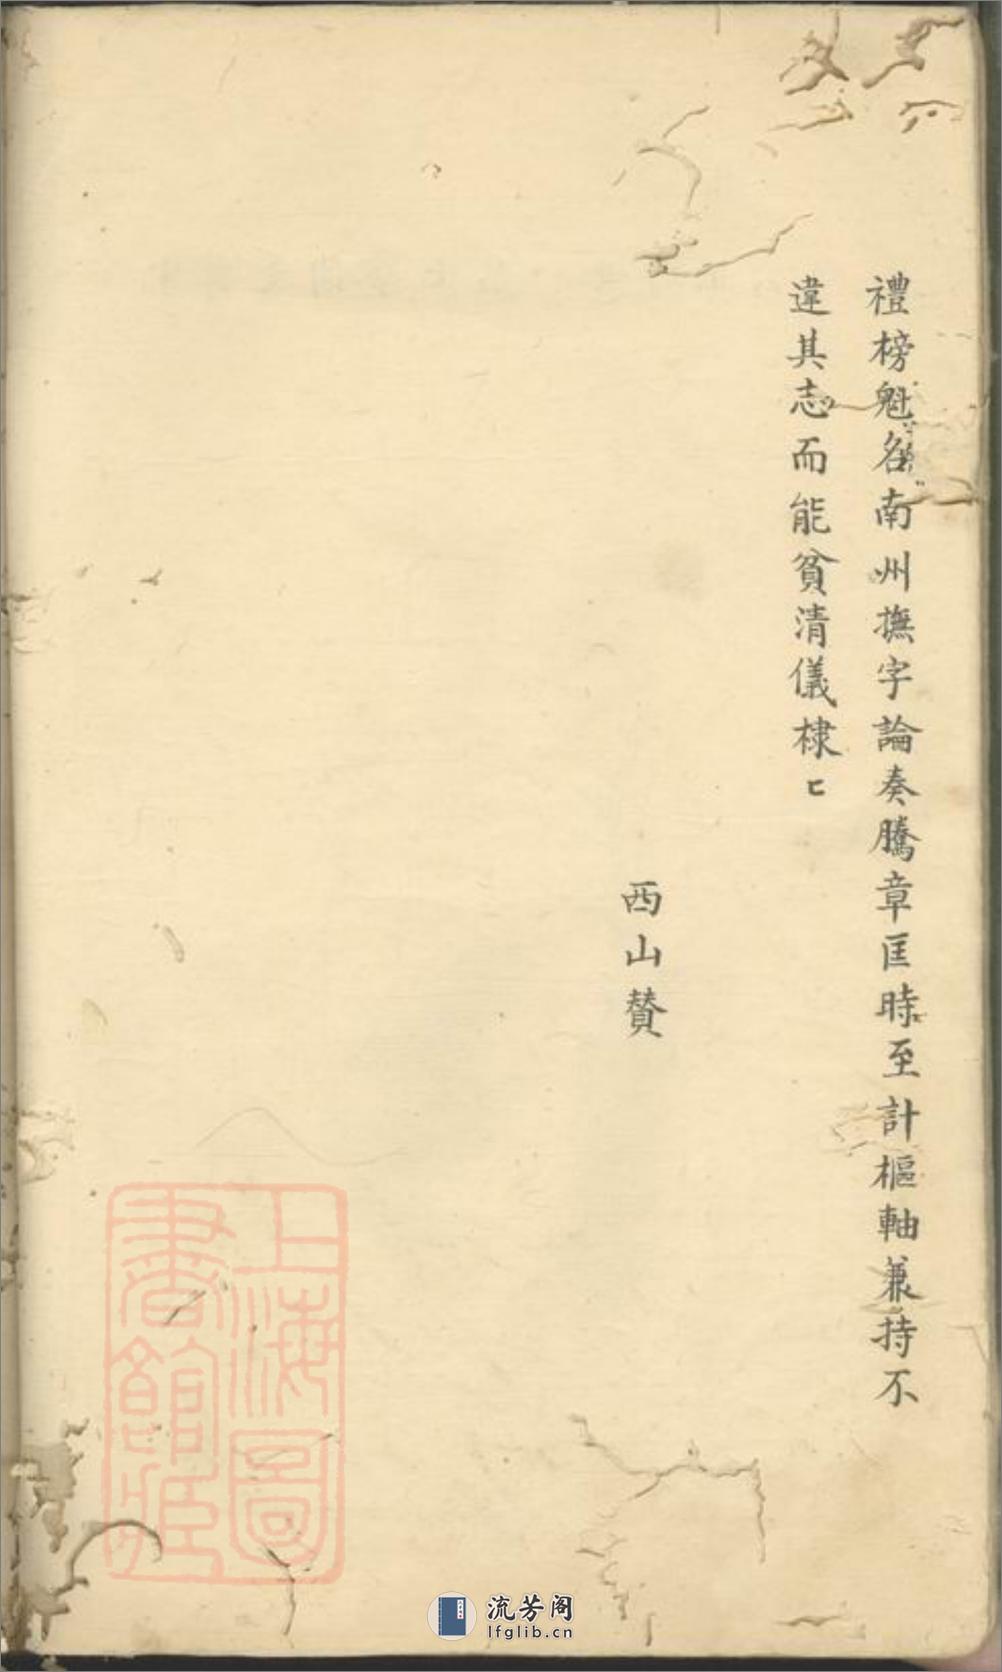 禮榜魁名南州撫字論奏騰章匡時至計樞軸兼持不
違其志而能貧清儀棣〻
西山贊
上海圖
書館藏
流芳阁
lfglib.cn